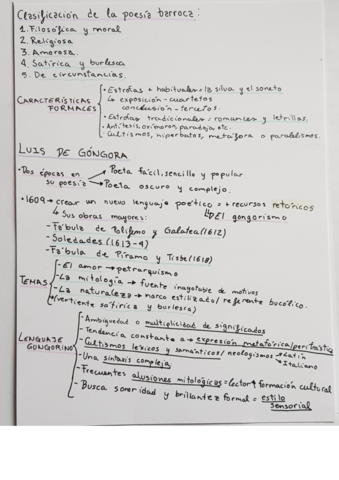 Clasificación de la poesía barroca:
1. Filosófica y moral
2. Religiosa
3. Amorosa.
4. Satírica y burlesca
5. De circunstancias.
CARACTERÍSTICAS FORMALES
- Estrofas + habituales = la silva y el soneto
↳ exposición - cuartetos
conclusión - tercetos.
- Estrofas tradicionales = romances y letrillas.
- Antítesis, oxímoron, paradoja, etc.
- Cultismos, hipérbatos, metáfora o paralelismos.
LUIS DE GÓNGORA
• Dos épocas en su poesía
→ Poeta fácil, sencillo y popular
→ Poeta oscuro y complejo.
• 1609 → crear un nuevo lenguaje poético = + recursos retóricos
↳ Sus obras mayores:
↳ El gongorismo
- Fábula de Polifemo y Galatea (1612)
- Soledades (1613-4)
- Fábula de Píramo y Tisbe (1618)
TEMAS
- El amor → petrarquismo
- La mitología → fuente inagotable de motivos
- La naturaleza → marco estilizado / referente bucólico.
+ (vertiente satírica y burlesca)
LENGUAJE GONGORINO
- Ambigüedad o multiplicidad de significados
- Tendencia constante a → expresión metafórica/perifrástica
- Cultismos léxicos y semánticos / neologismos → Latín
→ Italiano
- Una sintaxis compleja
- Frecuentes alusiones mitológicas = lector ↑ formación cultural
- Busca sonoridad y brillantez formal = estilo sensorial